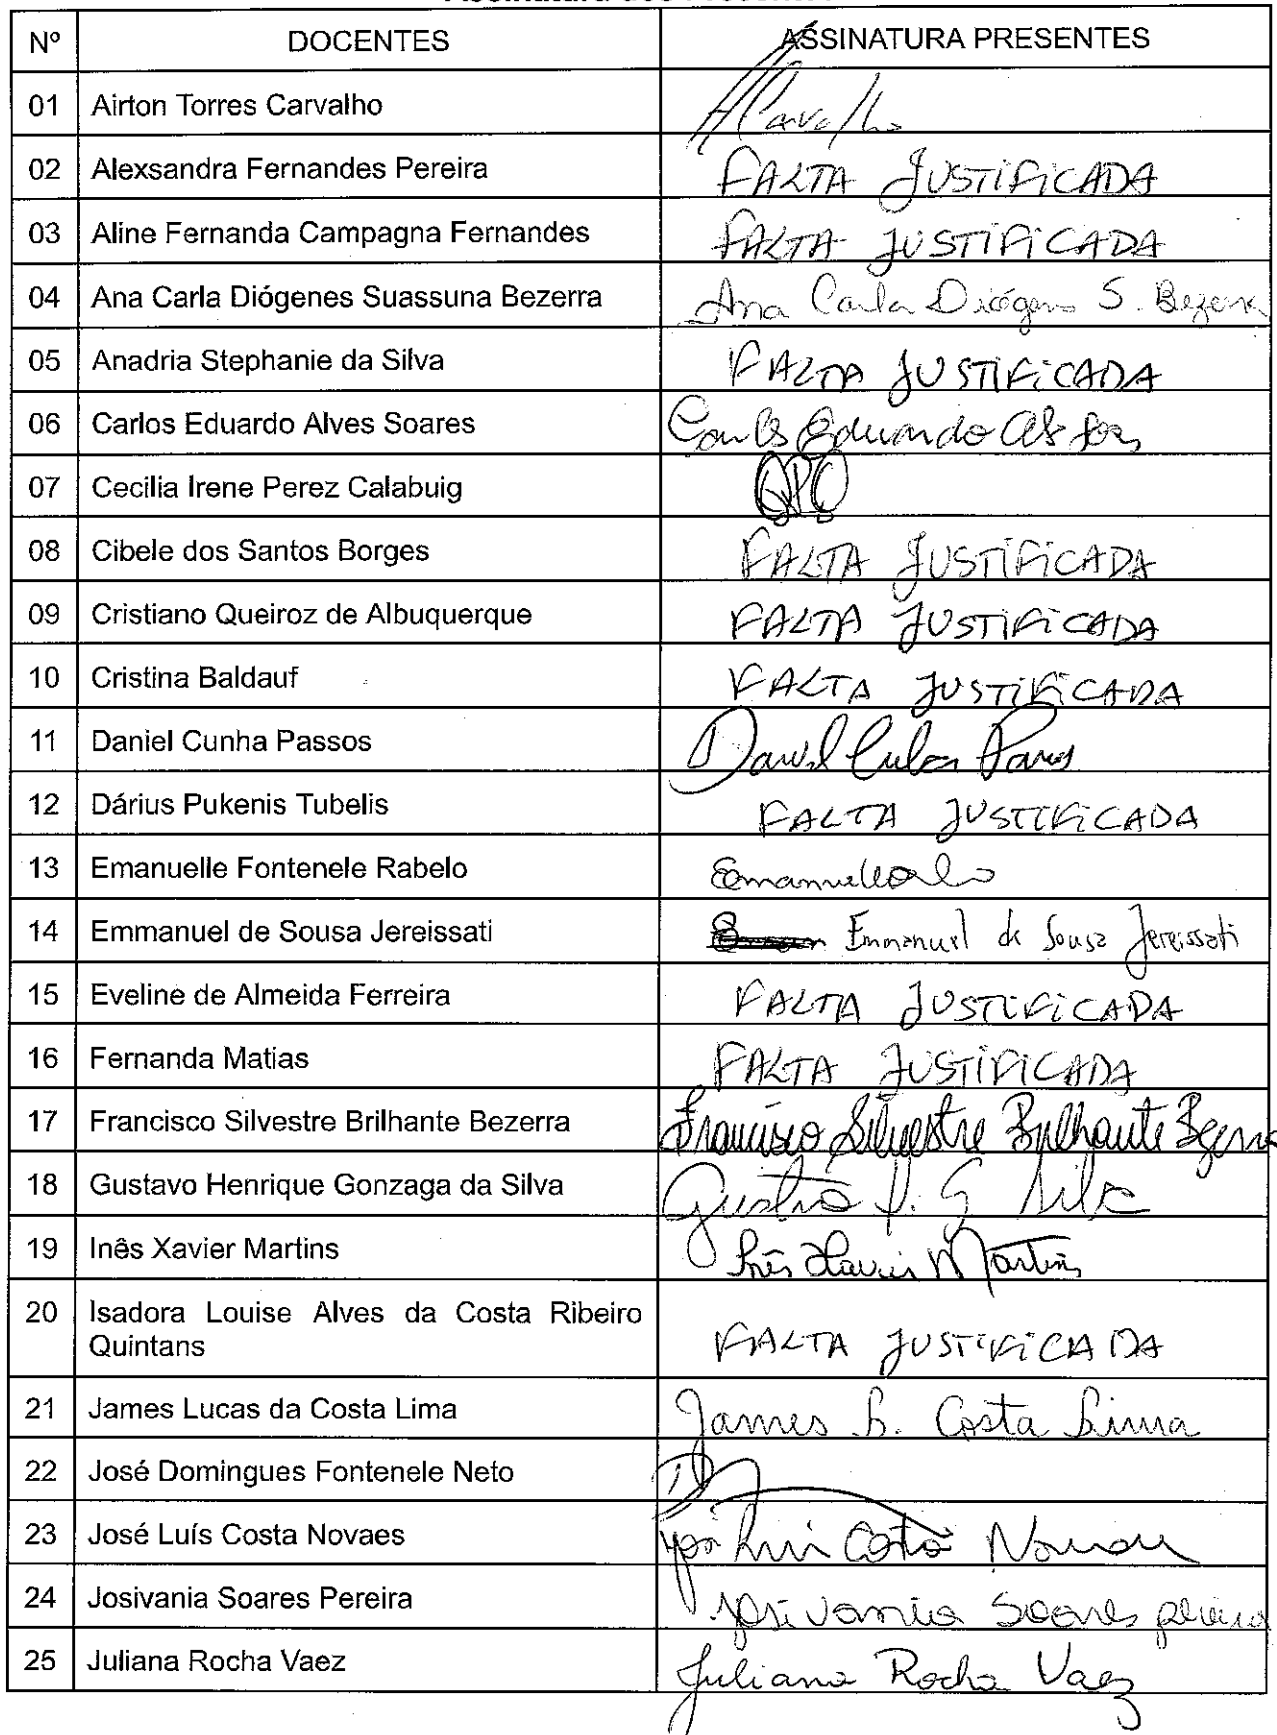 Nº DOCENTES ASSINATURA PRESENTES
01 Airton Torres Carvalho ACarvalho
02 Alexsandra Fernandes Pereira FALTA JUSTIFICADA
03 Aline Fernanda Campagna Fernandes FALTA JUSTIFICADA
04 Ana Carla Diógenes Suassuna Bezerra Ana Carla Diógenes S. Bezerra
05 Anadria Stephanie da Silva FALTA JUSTIFICADA
06 Carlos Eduardo Alves Soares Carlos Eduardo
07 Cecilia Irene Perez Calabuig
08 Cibele dos Santos Borges FALTA JUSTIFICADA
09 Cristiano Queiroz de Albuquerque FALTA JUSTIFICADA
10 Cristina Baldauf FALTA JUSTIFICADA
11 Daniel Cunha Passos Daniel Cunha Passos
12 Dárius Pukenis Tubelis FALTA JUSTIFICADA
13 Emanuelle Fontenele Rabelo
14 Emmanuel de Sousa Jereissati Emmanuel de Sousa Jereissati
15 Eveline de Almeida Ferreira FALTA JUSTIFICADA
16 Fernanda Matias FALTA JUSTIFICADA
17 Francisco Silvestre Brilhante Bezerra Francisco Silvestre Brilhante Bezerra
18 Gustavo Henrique Gonzaga da Silva Gustavo H. G. Silva
19 Inês Xavier Martins Inês Xavier Martins
20 Isadora Louise Alves da Costa Ribeiro
Quintans FALTA JUSTIFICADA
21 James Lucas da Costa Lima James L. Costa Lima
22 José Domingues Fontenele Neto
23 José Luís Costa Novaes José Luís Costa Novaes
24 Josivania Soares Pereira Josivania Soares Pereira
25 Juliana Rocha Vaez Juliana Rocha Vaez